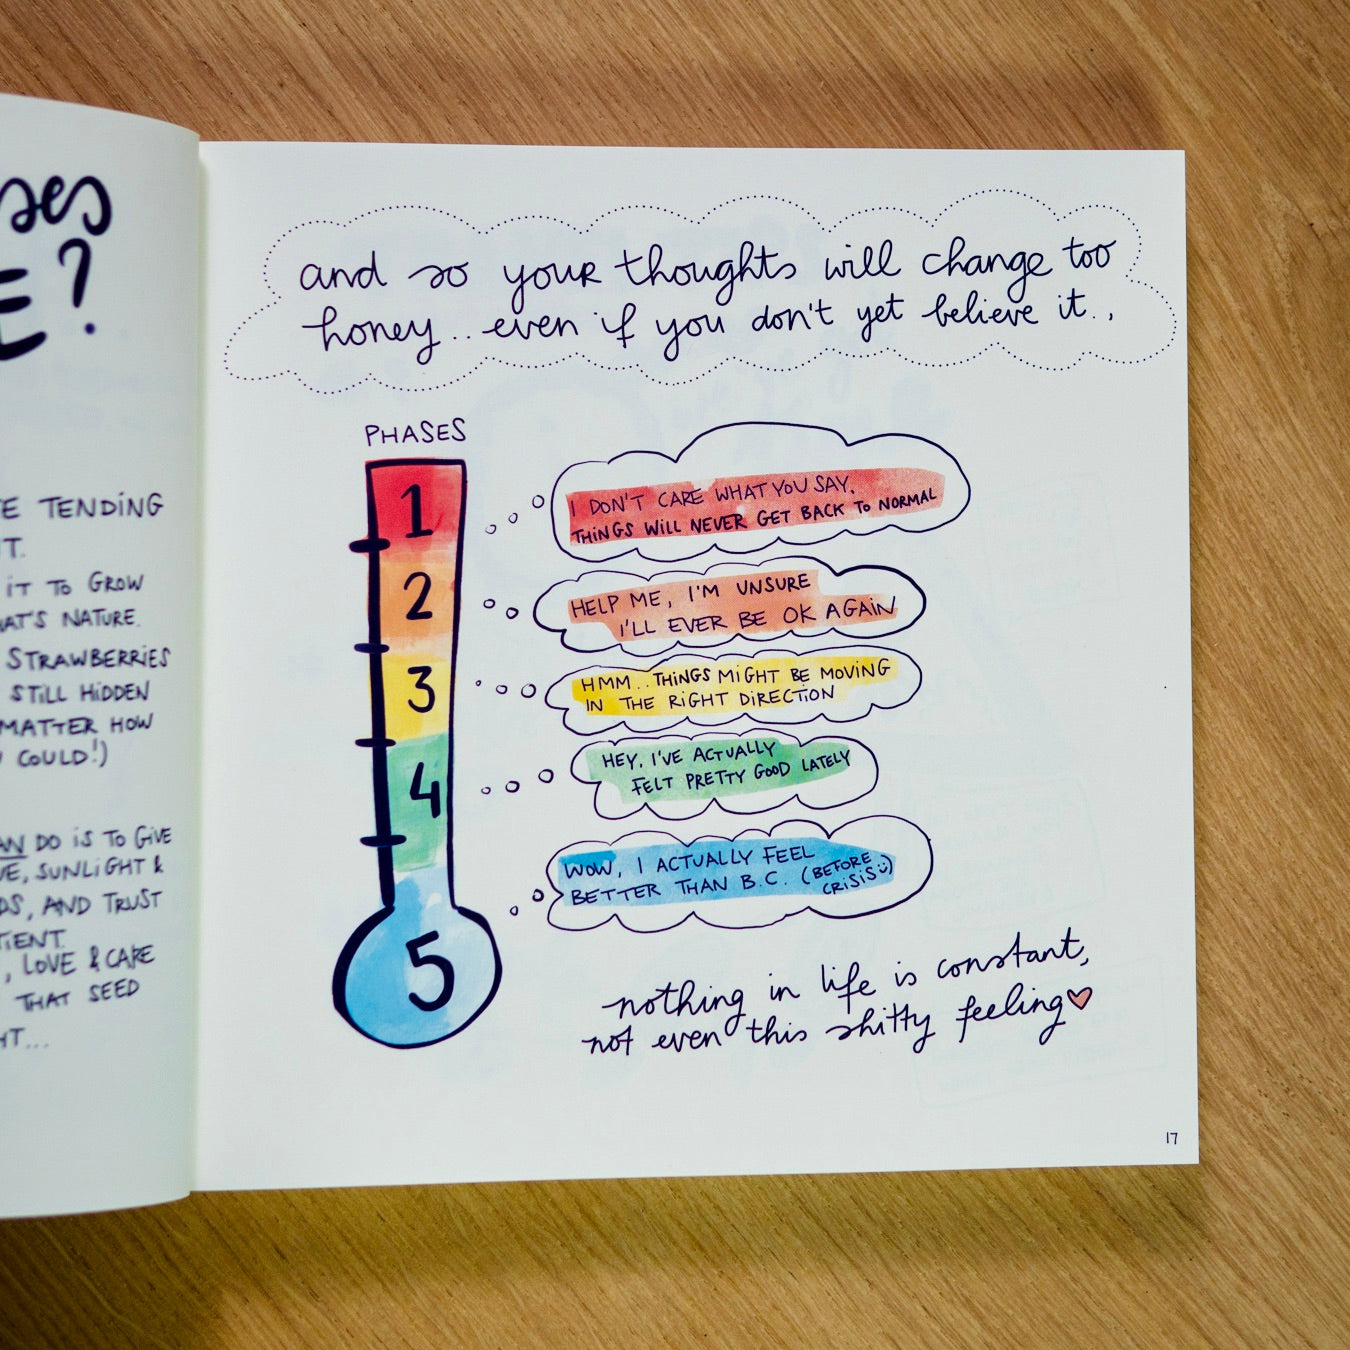 ?
TENDING
IT TO GROW
NATURE.
STRAWBERRIES
STILL HIDDEN
MATTER HOW
COULD!)
DO IS TO GIVE
SUNLIGHT &
AND TRUST
LOVE & CARE
THAT SEED
and so your thoughts will change too
honey.. even if you don't yet believe it..
PHASES
1
I DON'T CARE WHAT YOU SAY,
THINGS WILL NEVER GET BACK TO NORMAL
2
HELP ME, I'M UNSURE
I'LL EVER BE OK AGAIN
3
HMM.. THINGS MIGHT BE MOVING
IN THE RIGHT DIRECTION
4
HEY, I'VE ACTUALLY
FELT PRETTY GOOD LATELY
5
WOW, I ACTUALLY FEEL
BETTER THAN B.C. (BEFORE
CRISIS☺)
nothing in life is constant,
not even this shitty feeling♡
17